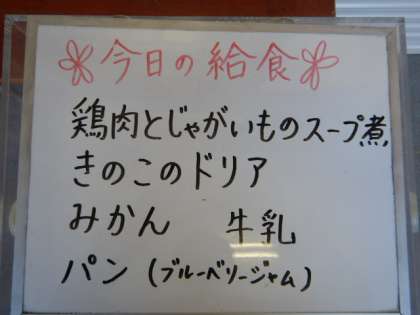 今日の給食
鶏肉とじゃがいものスープ煮
きのこのドリア
みかん 牛乳
パン (ブルーベリージャム)